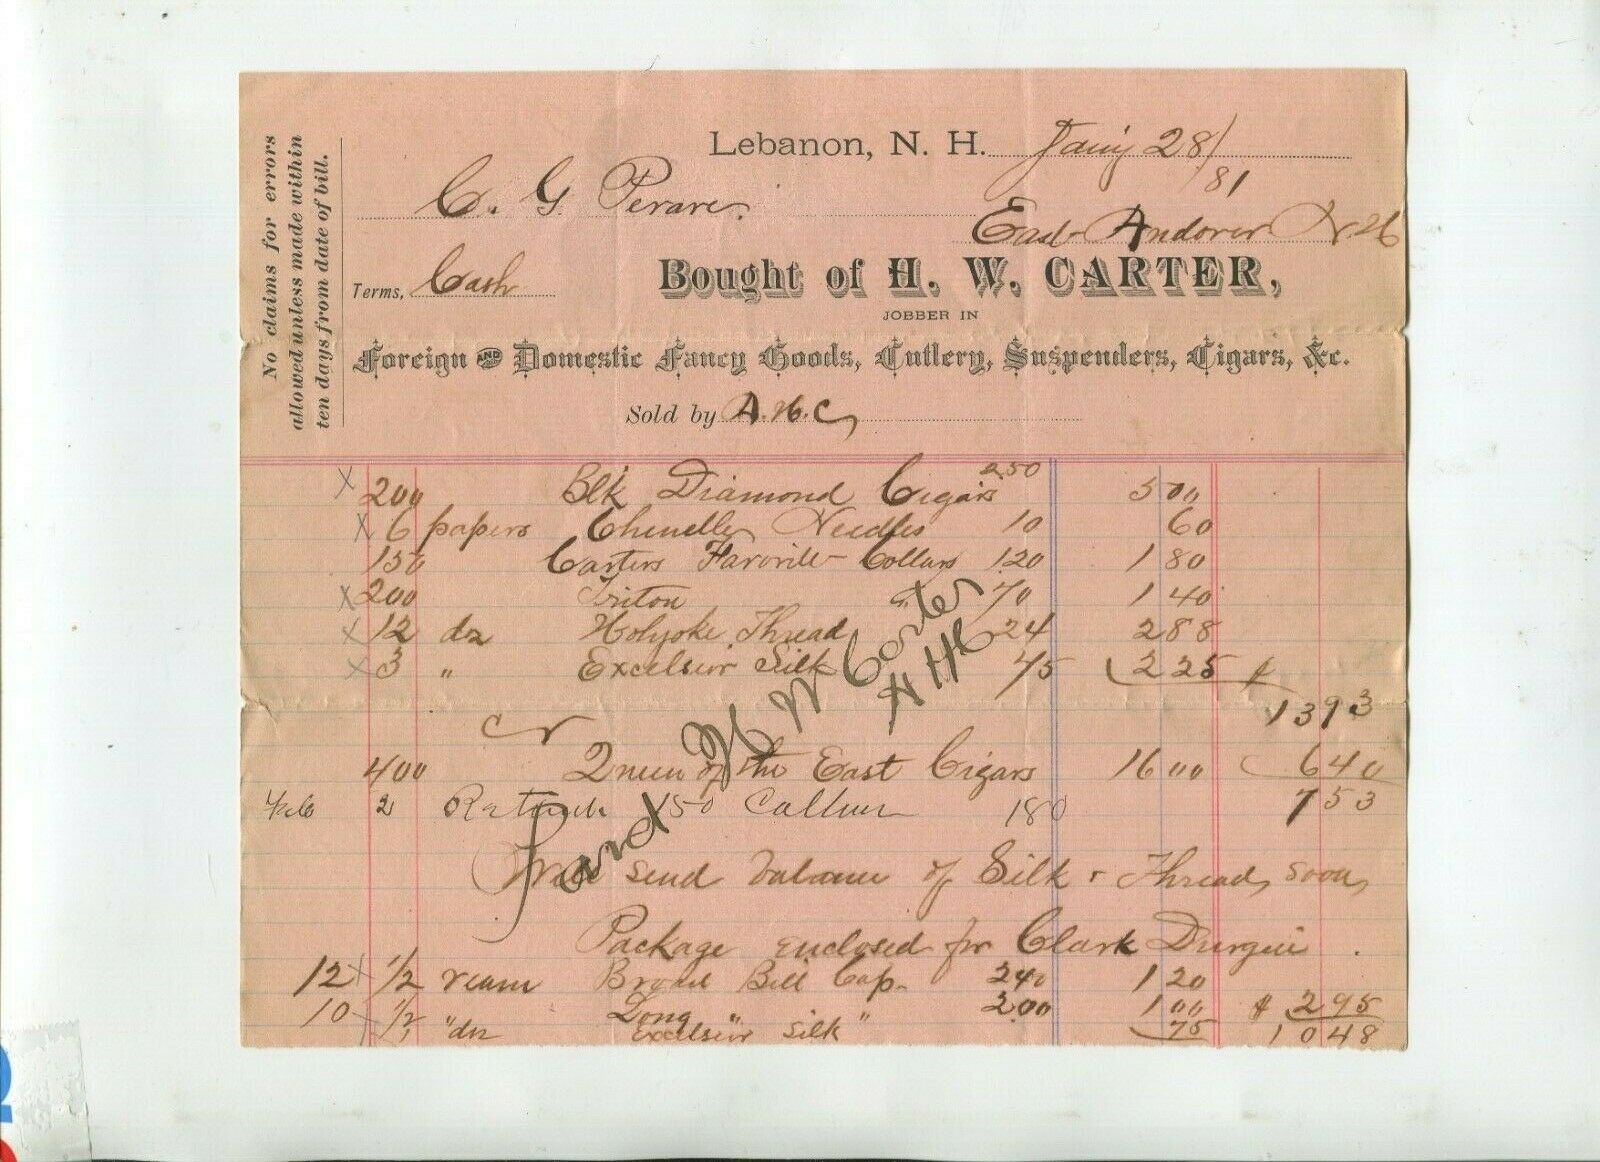 No claims for errors
allowed unless made within
ten days from date of bill.
Lebanon, N. H. Jany 28/81
C. G.
East Andover N.H
Terms, Cash
Bought of H. W. CARTER,
JOBBER IN
Foreign AND Domestic Fancy Goods, Cutlery, Suspenders, Cigars, &c.
Sold by A.H.C
x 200 Blk Diamond Cigars 250 500
x 6 papers Needles 10 60
150 Carters Favorite Collars 120 1 80
x 200 Triton " 70 1 40
x 12 dz Holyoke Thread 24 2 88
x 3 " Excelsior Silk 75 2 25 $
13 93
Cr
400 Queen of the East Cigars 16 00 6 40
7 53
Feb 2 150 180
Paid H W Carter
A H C
Will send balance of Silk & Thread, soon,
Package enclosed for Clark Durgin.
12 x 1/2 ream Broad Bill Cap. 240 1 20
10 x 1/2 " Long " " 200 1 00 $ 2 95
1/2 dz Excelsior Silk 75 10 48